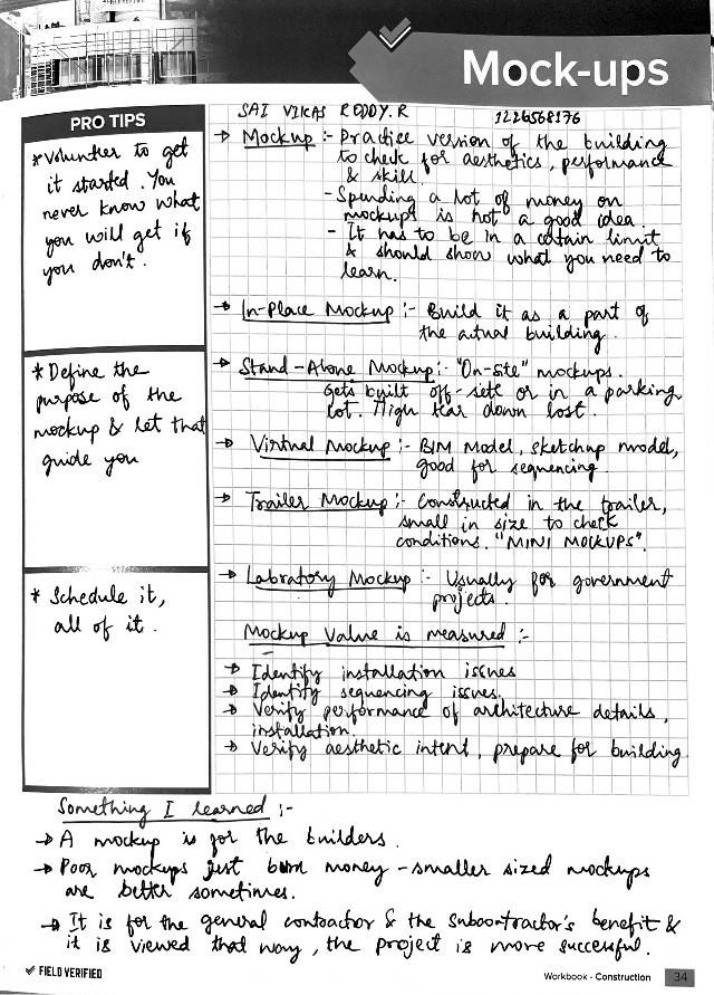 Mock-ups
PRO TIPS
* Volunteer to get
it started. You
never know what
you will get if
you don't.
* Define the
purpose of the
mockup & let that
guide you
* Schedule it,
all of it.
SAI VIKAS REDDY.R 1226568176
→ Mockup :- Practice version of the building
to check for aesthetics, performance
& skill.
- Spending a lot of money on
mockups is not a good idea.
- It has to be in a certain limit
& should show what you need to
learn.
→ In-Place Mockup :- Build it as a part of
the actual building.
→ Stand-Alone Mockup :- "On-site" mockups.
Gets built off-site or in a parking
lot. High tear down cost.
→ Virtual Mockup :- BIM Model, sketchup model,
good for sequencing.
→ Trailer Mockup :- Constructed in the trailer,
small in size to check
conditions. "MINI MOCKUPS".
→ Labratory Mockup :- Usually for government
projects.
Mockup Value is measured :-
→ Identify installation issues
→ Identify sequencing issues.
→ Verify performance of architecture details,
installation.
→ Verify aesthetic intent, prepare for building
Something I learned :-
→ A mockup is for the builders.
→ Poor mockups just burn money - smaller sized mockups
are better sometimes.
→ It is for the general contractor & the subcontractor's benefit &
it is viewed that way, the project is more successful.
FIELD VERIFIED
Workbook - Construction 34